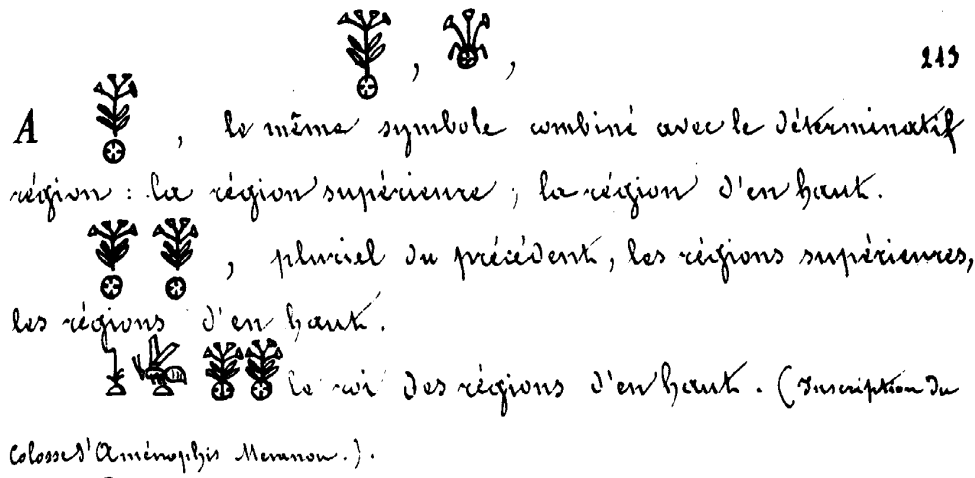 , , 213
A , le même symbole combiné avec le déterminatif
région : la région supérieure ; la région d'en haut.
, pluriel du précédent, les régions supérieures,
les régions d'en haut.
le roi des régions d'en haut. (Inscription du
Colosse d'Aménophis Memnon.).